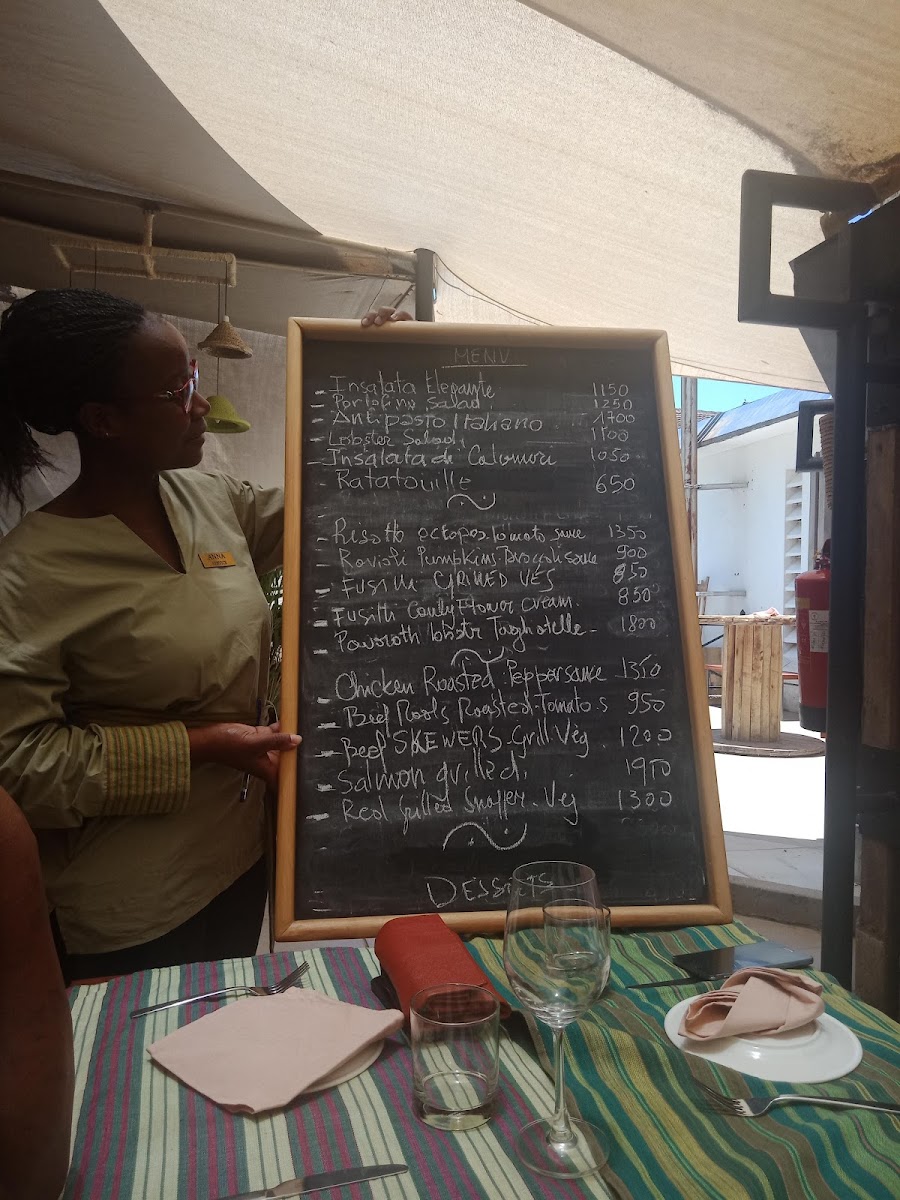 MENU
- Insalata Elegante 1150
- Portofino Salad 1250
- Antipasto Italiano 1700
- Lobster Salad 1100
- Insalata di Calamari 1050
- Ratatouille 650
- Risotto octopos tomato sauce 1350
- Ravioli Pumpkins-Broccoli sauce 900
- Fusilli GRILLED VEG 850
- Fusilli Couly Flower cream. 850
- lobstr Taghatelle- 1800
- Chicken Roasted. Pepper sauce 1350
- Beef Roots Roasted-Tomatos 950
- Beef SKEWERS-Grill Veg. 1200
- Salmon grilled. 1950
- Red Grilled Snapper. Vej 1300
DESSRTS
ANNA